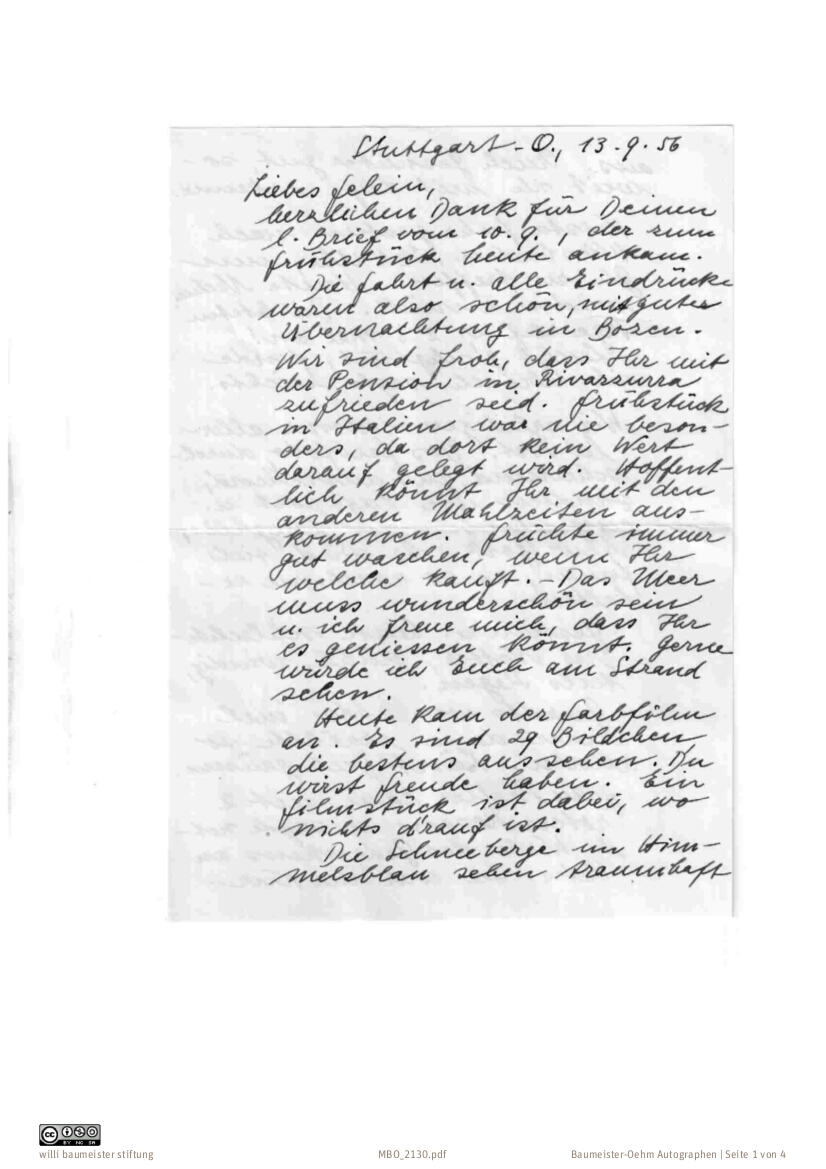 Stuttgart-O., 13.9.56
Liebes Felein,
herzlichen Dank für Deinen
l. Brief vom 10.9., der zum
Frühstück heute ankam.
Die Fahrt u. alle Eindrücke
waren also schön, mit guter
Übernachtung in Bozen.
Wir sind froh, dass Ihr mit
der Pension in Rivazzurra
zufrieden seid. Frühstück
in Italien war nie beson-
ders, da dort kein Wert
darauf gelegt wird. Hoffent-
lich könnt Ihr mit den
anderen Mahlzeiten aus-
kommen. Früchte immer
gut waschen, wenn Ihr
welche kauft. - Das Meer
muss wunderschön sein
u. ich freue mich, dass Ihr
es geniessen könnt. Gerne
würde ich Euch am Strand
sehen.
Heute kam der Farbfilm
an. Es sind 29 Bildchen
die bestens aussehen. Du
wirst Freude haben. Ein
Filmstück ist dabei, wo
nichts d'rauf ist.
Die Schneeberge im Him-
melsblau sehen traumhaft
CC BY NC SA
willi baumeister stiftung MBO_2130.pdf Baumeister-Oehm Autographen | Seite 1 von 4